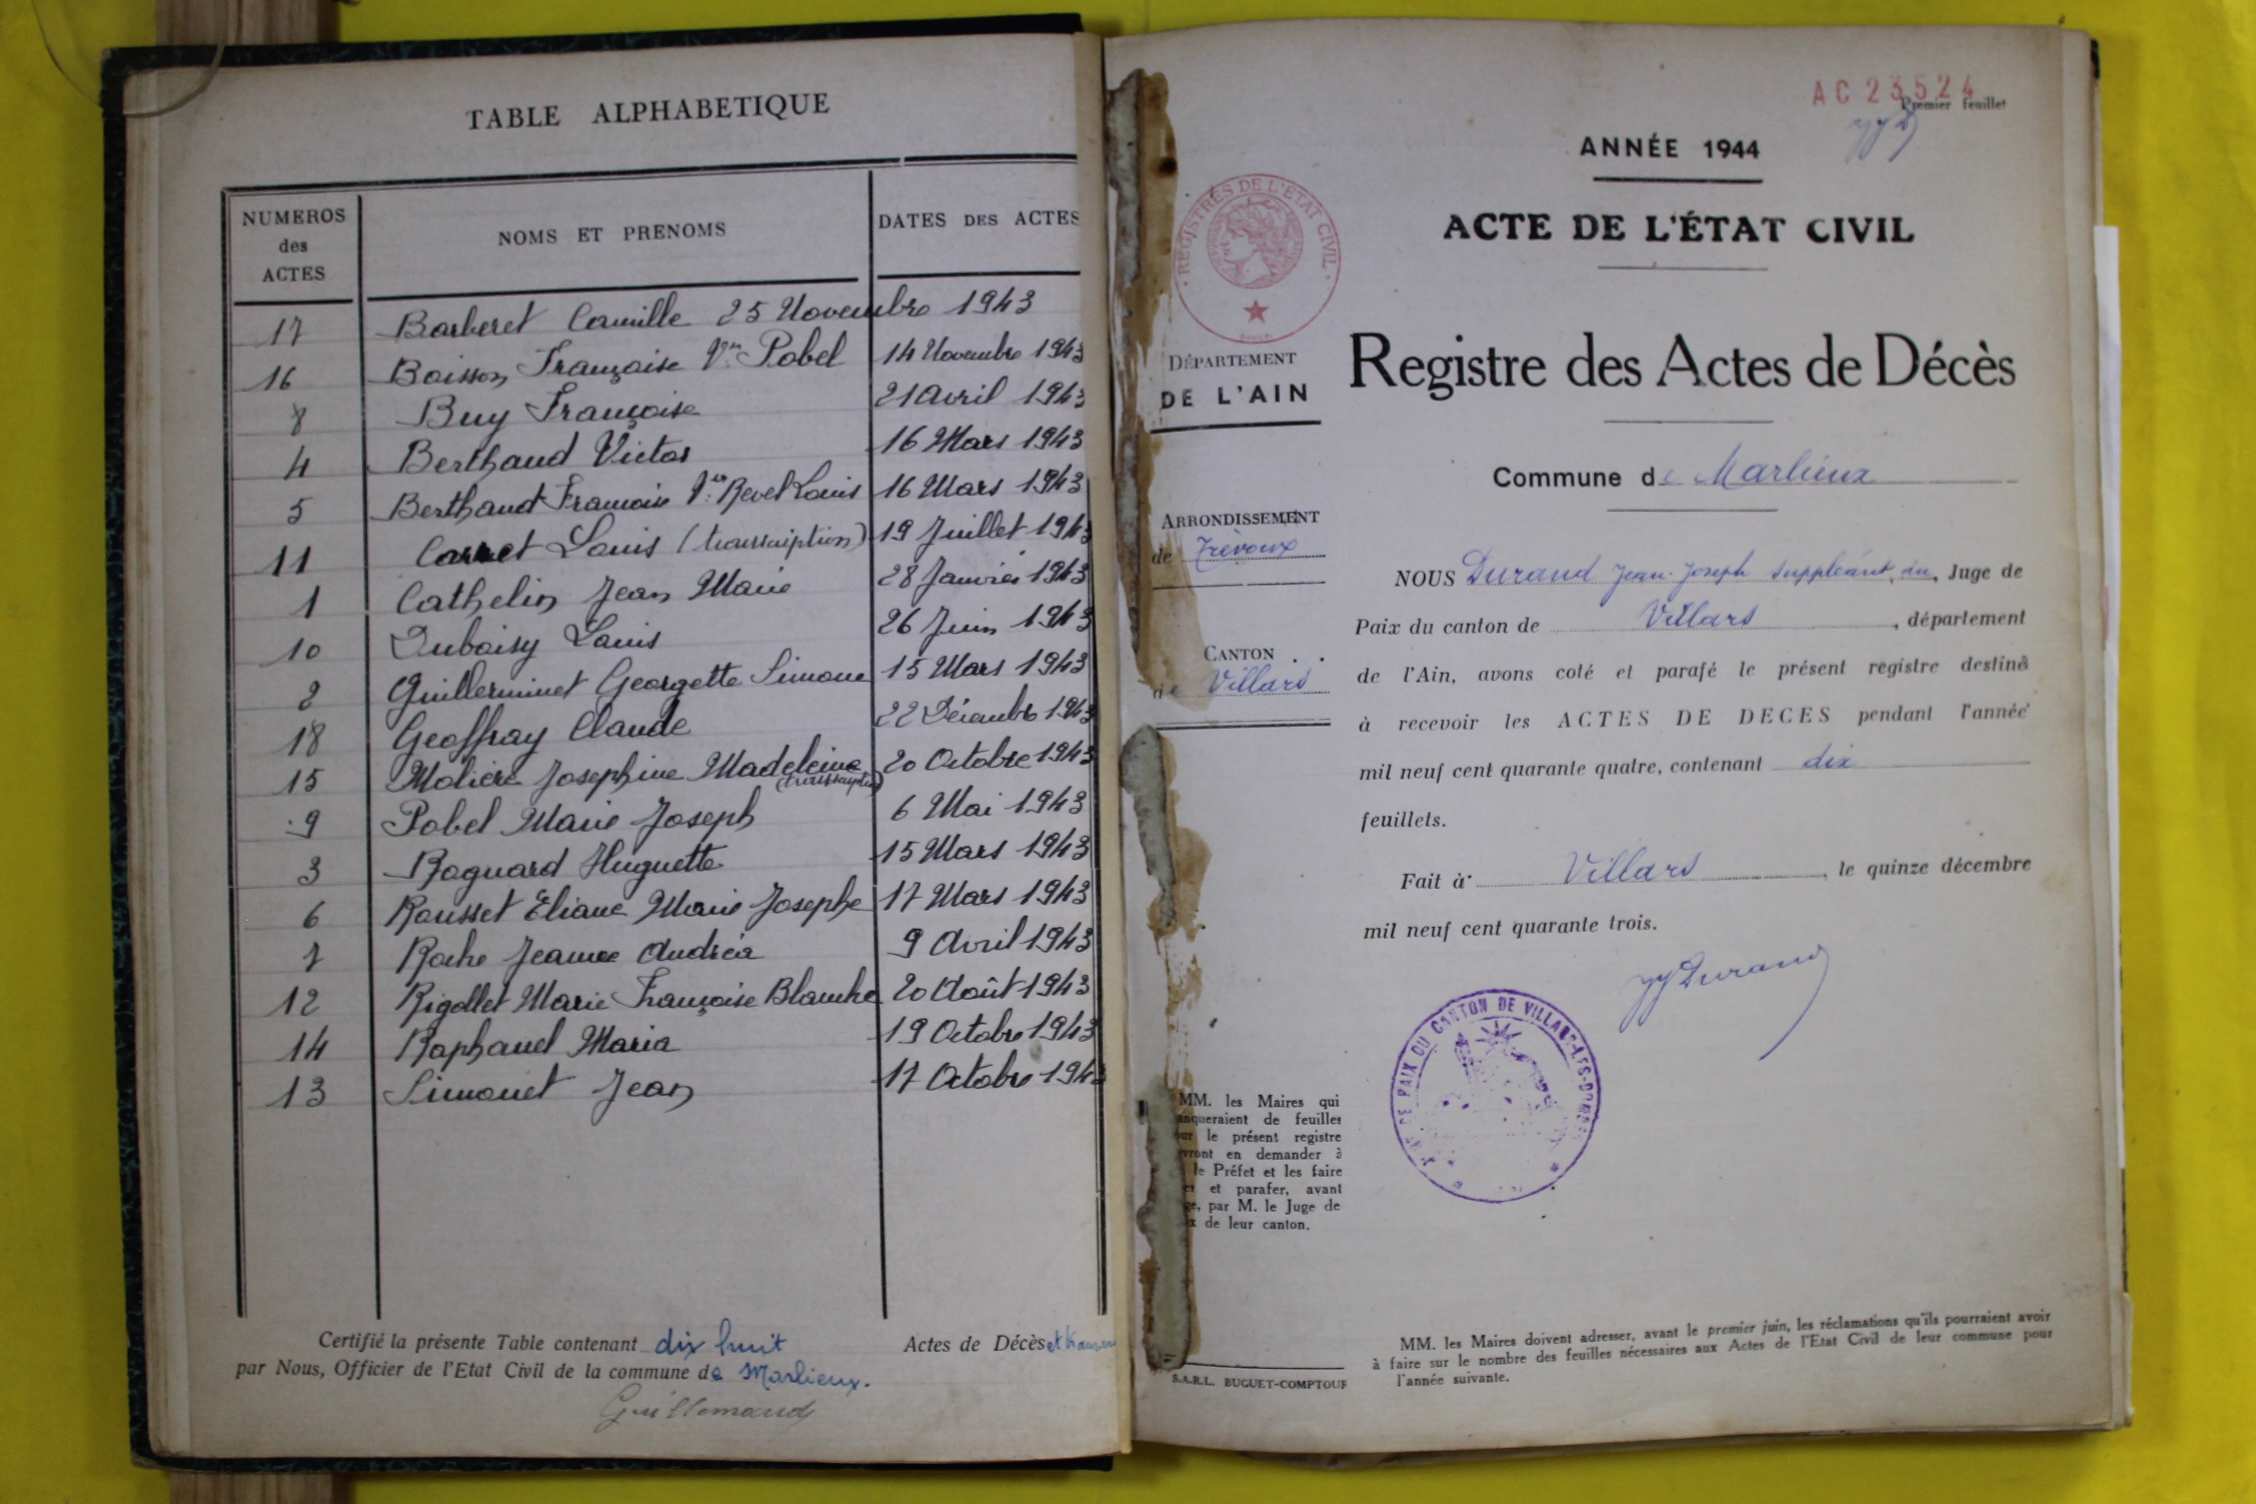 TABLE ALPHABETIQUE
NUMEROS des ACTES
NOMS ET PRENOMS
DATES DES ACTES
17 Barberet Camille 25 Novembre 1943
16 Boisson Françoise Vve Pobel 14 Novembre 1943
8 Buy Françoise 21 Avril 1943
4 Berthaud Victor 16 Mars 1943
5 Berthaud Francoise Vve Revel Louis 16 Mars 1943
11 Carret Louis (transcription) 19 Juillet 1943
1 Cathelin Jean Marie 28 Janvier 1943
10 Duboisy Louis 26 Juin 1943
2 Guillerminet Georgette Simone 15 Mars 1943
18 Geoffray Claude 22 Décembre 1943
15 Molière Josephine Madeleine 20 Octobre 1943
(transcription)
9 Pobel Marie Joseph 6 Mai 1943
3 Roguard Huguette 15 Mars 1943
6 Rousset Eliane Marie Josephe 17 Mars 1943
7 Roche Jeanne Andréa 9 Avril 1943
12 Rigollet Marie Françoise Blanche 20 Août 1943
14 Raphanel Maria 19 Octobre 1943
13 Simonet Jean 17 Octobre 1943
Certifié la présente Table contenant dix huit Actes de Décès et
par Nous, Officier de l'Etat Civil de la commune de Marlieux.
Guillemaud
AC 23524
Premier feuillet
ANNÉE 1944
ACTE DE L'ÉTAT CIVIL
REGISTRES DE L'ÉTAT CIVIL
Registre des Actes de Décès
DÉPARTEMENT
DE L'AIN
Commune de Marlieux
ARRONDISSEMENT
de Trévoux
CANTON
de Villars
NOUS Durand Jean-Joseph suppléant du Juge de
Paix du canton de Villars, département
de l'Ain, avons coté et parafé le présent registre destiné
à recevoir les ACTES DE DECES pendant l'année
mil neuf cent quarante quatre, contenant dix
feuillets.
Fait à Villars, le quinze décembre
mil neuf cent quarante trois.
JJ Durand
DE PAIX DU CANTON DE VILLARS-LES-DOMBES
MM. les Maires qui
de feuilles
le présent registre
en demander à
le Préfet et les faire
et parafer, avant
par M. le Juge de
de leur canton.
S.A.R.L. BUGUET-COMPTOUR
MM. les Maires doivent adresser, avant le premier juin, les réclamations qu'ils pourraient avoir
à faire sur le nombre des feuilles nécessaires aux Actes de l'Etat Civil de leur commune pour
l'année suivante.